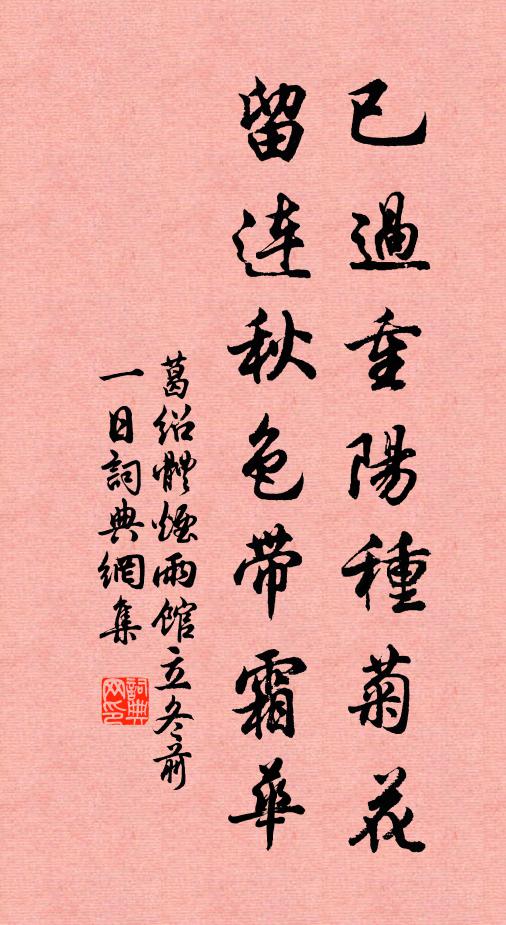 已過重陽種菊花
留連秋色帶霜華
葛紹體煙雨館立冬前
一日詞典網集
詞典
网印